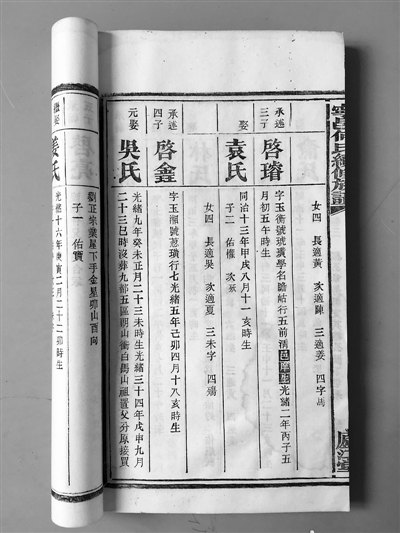 女四 長適黃 次適陳 三適姜 四字馮
承述
三子
啓璿
字玉衡號琥璜學名瞻結行五前清邑庠生光緒二年丙子五
月初五午時生
娶
袁氏
同治十三年甲戌八月十一亥時生
子二 佑權 次
女四 長適吳 次適夏 三未字 四殤
承述
四子
啓鑫
字玉潤號蒽璜行七光緒五年己卯四月十八亥時生
元娶
吳氏
光緒九年癸未正月二十三未時生光緒三十四年戊申九月
二十三巳時沒葬九都五區朝山衝白鶴山祖置父分原接買
劉正宗業屋下手金星卯山酉向
子一 佑寶
繼娶
姜氏
光緒十六年庚寅二月二十二卯時生